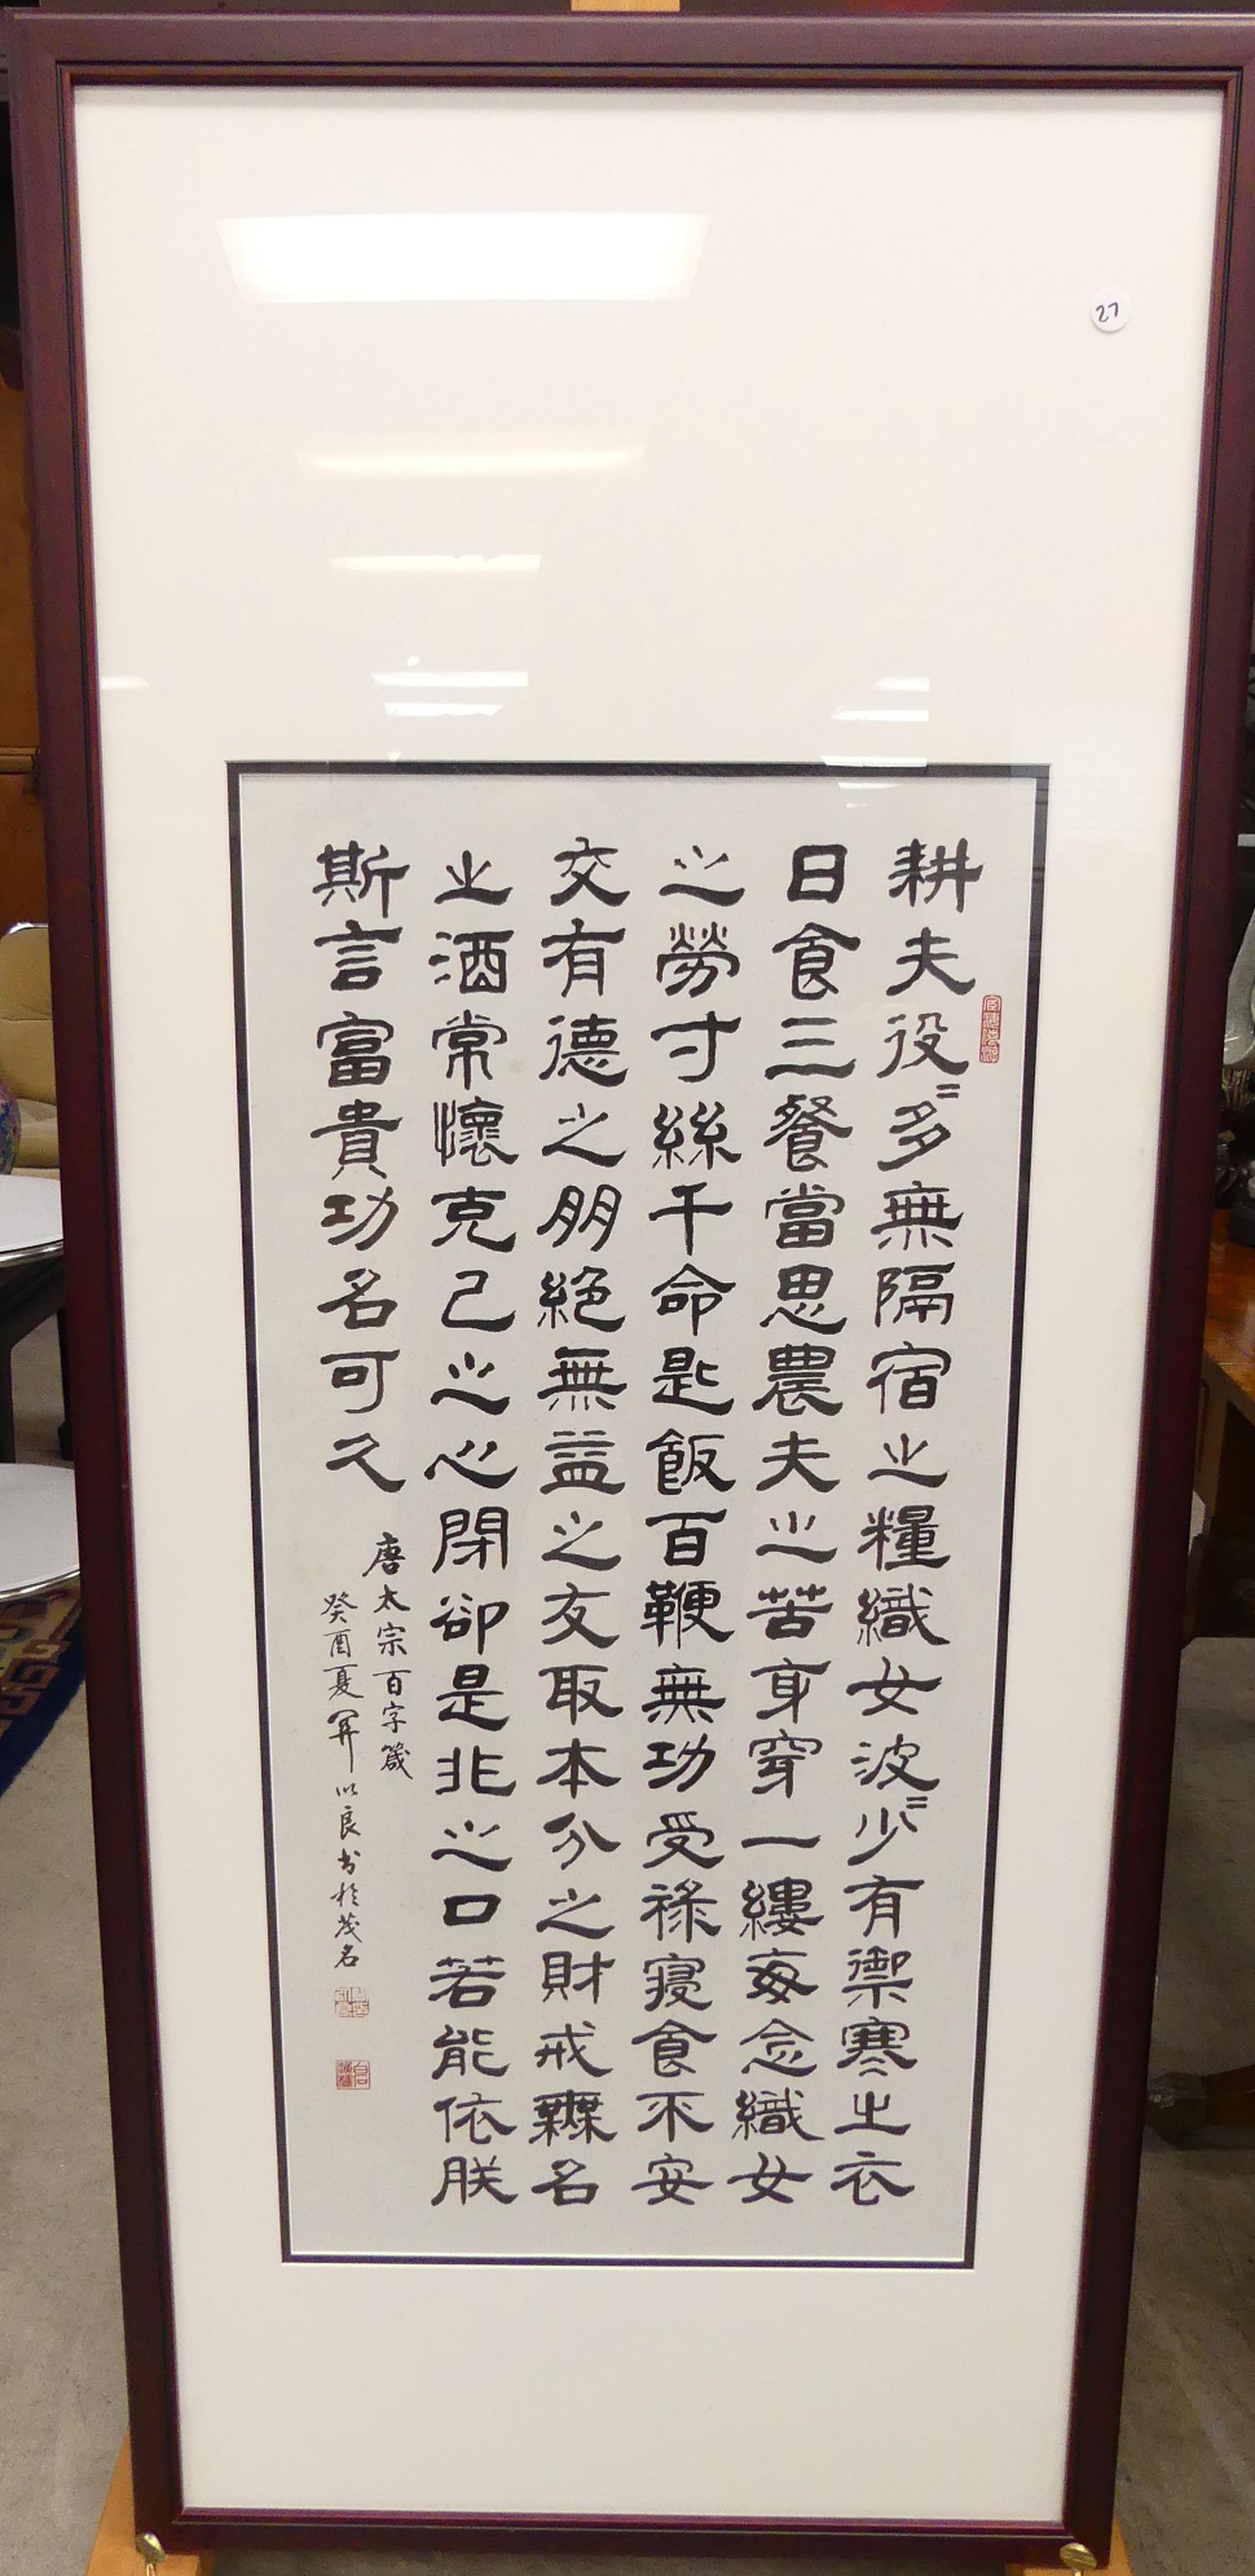 耕夫役〻多無隔宿之糧織女波〻少有禦寒之衣
日食三餐當思農夫之苦身穿一縷每念織女
之勞寸絲千命匙飯百鞭無功受祿寢食不安
交有德之朋絕無益之友取本分之財戒無名
之酒常懷克己之心閉卻是非之口若能依朕
斯言富貴功名可久
唐太宗百字箴
癸酉夏 以良书於茂名
27